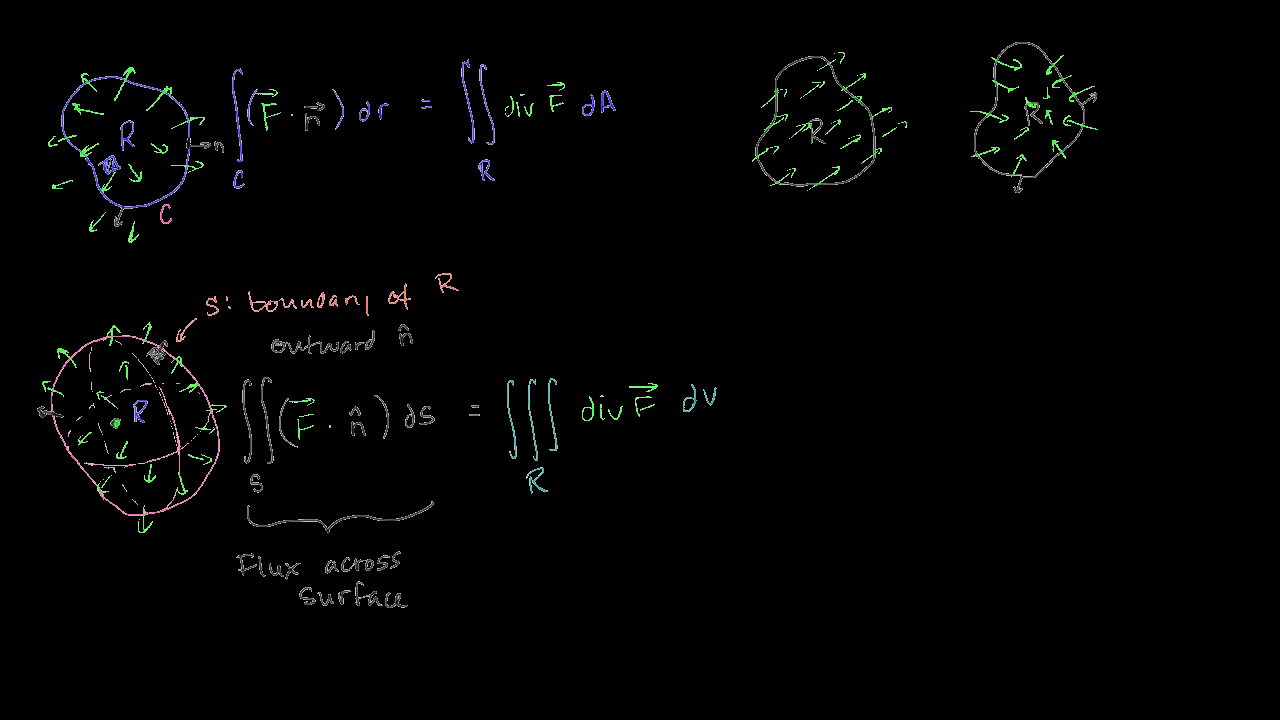 R
n
C
∫_C (F⃗ · n⃗) dr = ∬_R div F⃗ dA
R
R
S: boundary of R
outward n̂
R
∬_S (F⃗ · n̂) dS = ∭_R div F⃗ dV
Flux across
surface